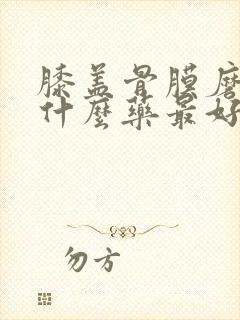 膝盖骨膜磨
什麼藥最好
勿方